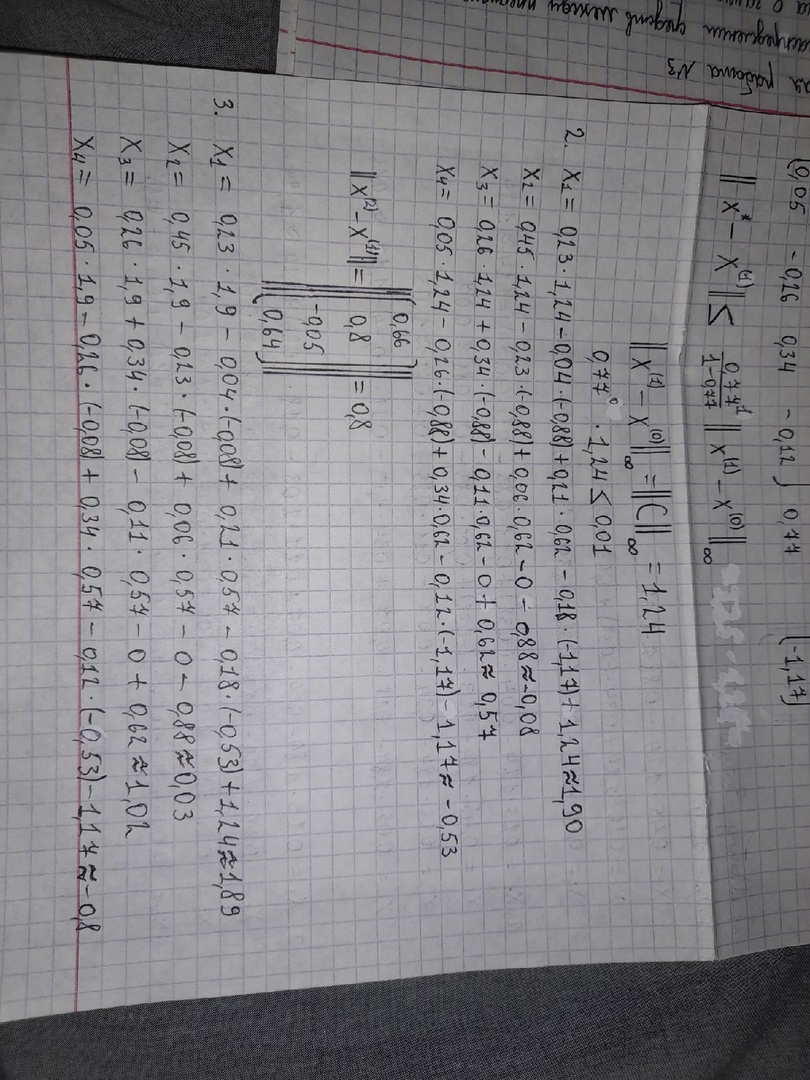 ая работа №3
(0,05 - 0,26 0,34 - 0,12) 0,77 (-1,17)
|| X* - X⁽¹⁾ || ≤ 0,77¹/(1-0,77) || X⁽¹⁾ - X⁽⁰⁾ ||∞
|| X⁽¹⁾ - X⁽⁰⁾ ||∞ = || C ||∞ = 1,24
0,77 · 1,24 ≤ 0,01
2. X₁ = 0,23 · 1,24 - 0,04 · (-0,88) + 0,21 · 0,62 - 0,18 · (-1,17) + 1,24 ≈ 1,90
X₂ = 0,45 · 1,24 - 0,23 · (-0,88) + 0,06 · 0,62 - 0 - 0,88 ≈ -0,08
X₃ = 0,26 · 1,24 + 0,34 · (-0,88) - 0,11 · 0,62 - 0 + 0,62 ≈ 0,57
X₄ = 0,05 · 1,24 - 0,26 · (-0,88) + 0,34 · 0,62 - 0,12 · (-1,17) - 1,17 ≈ -0,53
|| X⁽²⁾ - X⁽¹⁾ || = || (0,66
0,8
-0,05
0,64) || = 0,8
3. X₁ = 0,23 · 1,9 - 0,04 · (-0,08) + 0,21 · 0,57 - 0,18 · (-0,53) + 1,24 ≈ 1,89
X₂ = 0,45 · 1,9 - 0,23 · (-0,08) + 0,06 · 0,57 - 0 - 0,88 ≈ 0,03
X₃ = 0,26 · 1,9 + 0,34 · (-0,08) - 0,11 · 0,57 - 0 + 0,62 ≈ 1,02
X₄ = 0,05 · 1,9 - 0,26 · (-0,08) + 0,34 · 0,57 - 0,12 · (-0,53) - 1,17 ≈ -0,8